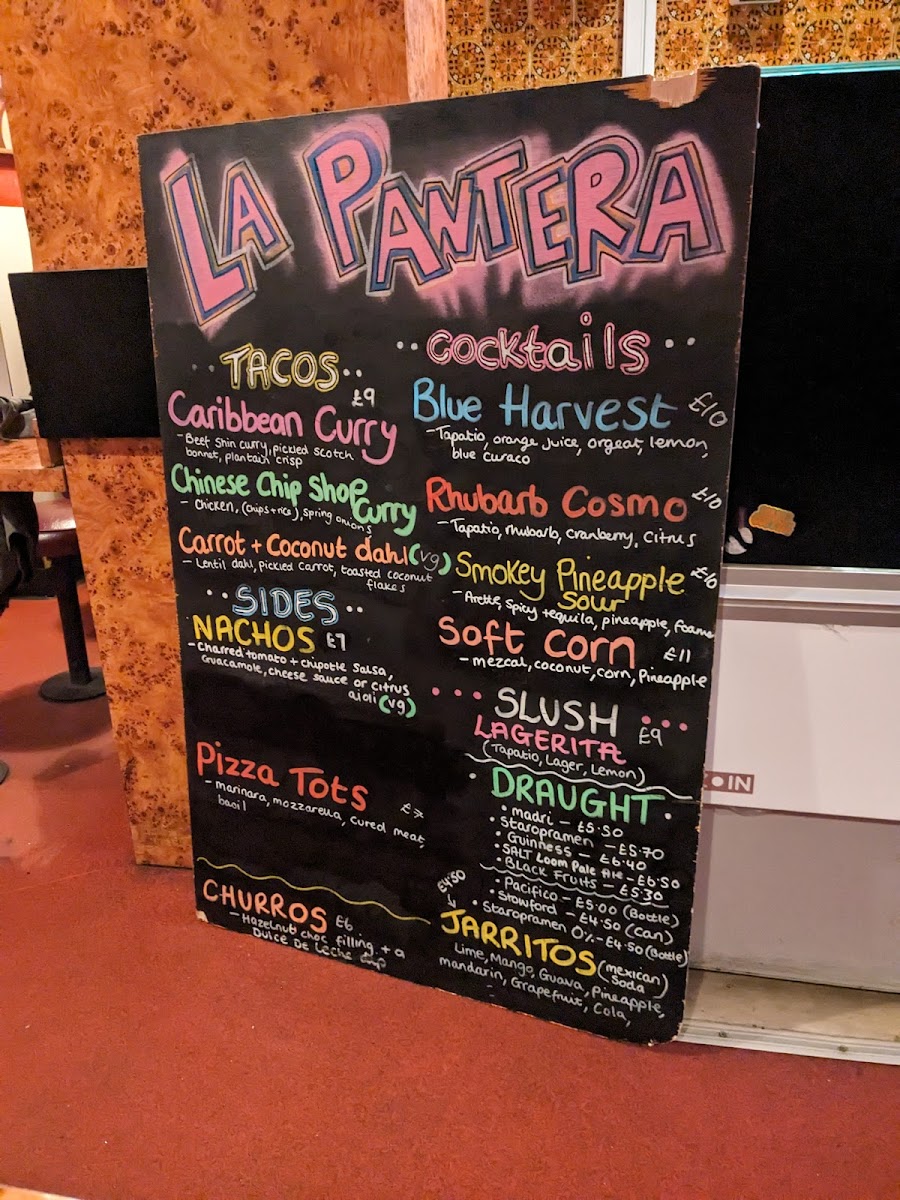 LA PANTERA
TACOS
£9
Caribbean Curry
- Beef shin curry, pickled scotch
bonnet, plantain crisp
Chinese Chip Shop
Curry
- Chicken, (chips + rice), spring onions
Carrot + Coconut dahl (vg)
- Lentil dahl, pickled carrot, toasted coconut
flakes
SIDES
NACHOS £7
- Charred tomato + chipotle salsa,
Guacamole, cheese sauce or citrus
aioli (vg)
Pizza Tots
- marinara, mozzarella, cured meat,
basil
CHURROS £6
- Hazelnut choc filling + a
Dulce De Leche dip
Cocktails
Blue Harvest £10
- Tapatio, orange juice, orgeat, lemon,
blue curaco
Rhubarb Cosmo £10
- Tapatio, rhubarb, cranberry, citrus
Smokey Pineapple
Sour
- Arette, spicy tequila, pineapple, foamer
Soft Corn £11
- mezcal, coconut, corn, Pineapple
SLUSH
LAGERITA £9
(Tapatio, Lager, Lemon)
DRAUGHT
• madri - £5.50
• Staropramen - £5.70
• Guinness - £6.40
• SALT Loom Pale Ale - £6.50
• BLACK FRUITS - £5.30
• Pacifico - £5.00 (Bottle)
• Stowford - £4.50 (can)
• Staropramen 0% - £4.50 (Bottle)
£4.50
JARRITOS (mexican
soda)
Lime, Mango, Guava, Pineapple,
mandarin, Grapefruit, Cola,
COIN